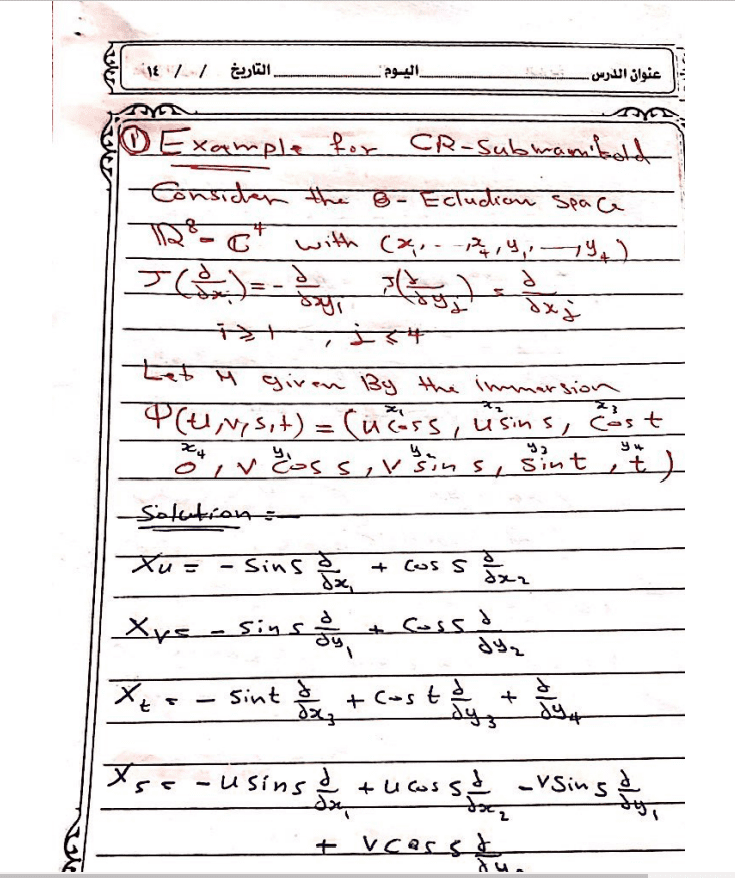 عنوان الدرس اليوم التاريخ / / ١٤
① Example for CR-Submanifold
Consider the 8-Ecludian Space
ℝ⁸ = ℂ⁴ with (x₁, --, x₄, y₁, —, y₄)
J(∂/∂xᵢ) = -∂/∂yᵢ , J(∂/∂yⱼ) = ∂/∂xⱼ
i ≥ 1 , j ≤ 4
Let M given By the immersion
x₁ x₂ x₃
Ψ(u,v,s,t) = (u cos s, u sin s, cos t
x₄ y₁ y₂ y₃ y₄
0, v cos s, v sin s, sin t, t)
Solution :-
Xu = - sin s ∂/∂x₁ + cos s ∂/∂x₂
Xv = - sin s ∂/∂y₁ + cos s ∂/∂y₂
Xt = - sin t ∂/∂x₃ + cos t ∂/∂y₃ + ∂/∂y₄
Xs = - u sin s ∂/∂x₁ + u cos s ∂/∂x₂ - v sin s ∂/∂y₁
+ v cos s ∂/∂y₂